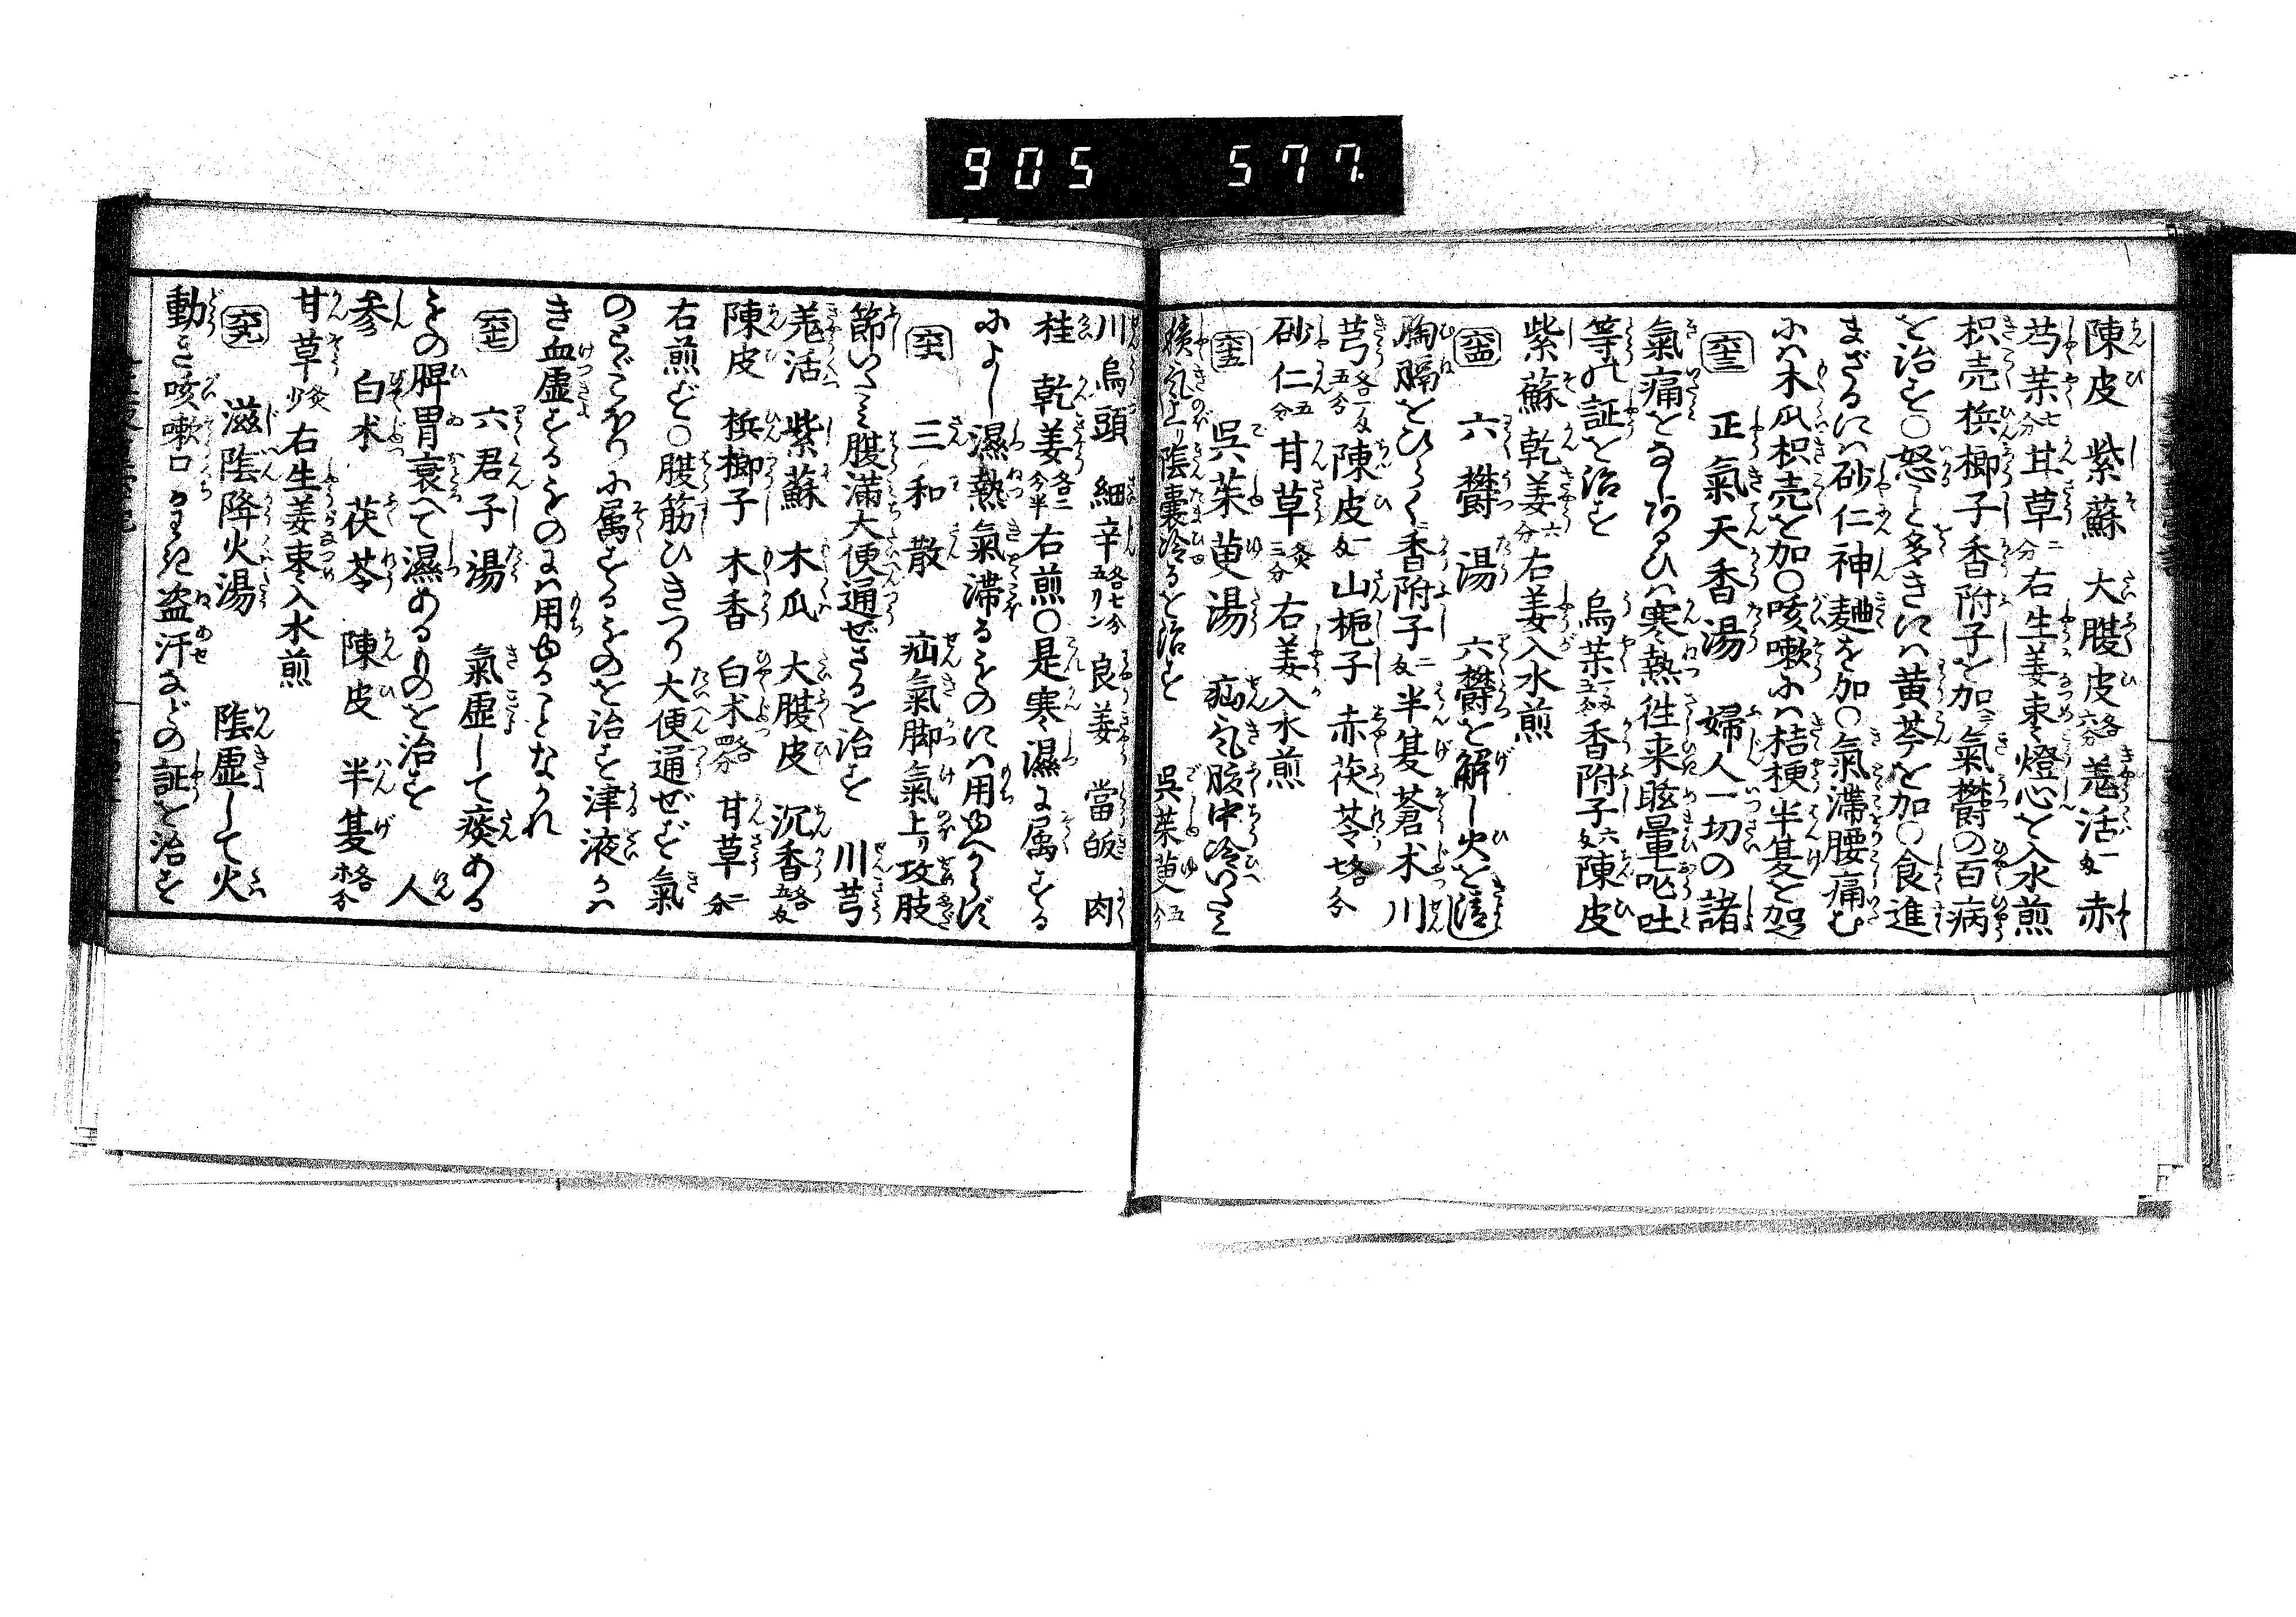 905 577
陳皮 紫蘇 大腹皮各六分 羌活一匁 赤
芍茱七分 甘草二分 右生姜棗燈心を入水煎
枳壳梹榔子香附子を加ヘ氣欝の百病
を治す〇怒こと多きには黄芩を加〇食進
まざるには砂仁神麹を加〇氣滞腰痛む
には木瓜枳壳を加〇咳嗽には桔梗半夏を加
六十三 正氣天香湯 婦人一切の諸
氣痛をなしあるひは寒熱徃来眩暈呕吐
等の証を治す 烏茱 香附子六匁 陳皮
紫蘇 乾姜六分 右姜入水煎
六十四 六欝湯 六欝を解し火を清し
胸膈をひらく 香附子二匁 半夏 蒼朮 川
芎各一匁五分 陳皮一匁 山梔子 赤茯苓各七分
砂仁五分 甘草炙三分 右姜入水煎
六十五 呉茱萸湯 疝气胲中冷いたみ
積气上り陰嚢冷るを治す 呉茱萸五分
川烏頭 細辛各七分五リン 良姜 當皈 肉
桂 乾姜各二分半 右煎〇是寒濕に属する
によし濕熱氣滞るものには用ゆべからず
六十六 三和散 疝氣脚氣上り攻肢
節いたみ腹滿大便通ぜざるを治す 川芎
羌活 紫蘇 木瓜 大腹皮 沉香各五匁
陳皮 梹榔子 木香 白朮各四分 甘草二分
右煎ず〇腹筋ひきつり大便通ぜず氣
のとゞこほりに属するものを治す津液かは
き血虚するものには用ゆることなかれ
六十七 六君子湯 氣虚して痰ある
もの脾胃衰へて濕あるものを治す 人
参 白朮 茯苓 陳皮 半夏各分
甘草炙少 右生姜棗入水煎
滋陰降火湯 陰虚して火
動き咳嗽口かはき盗汗などの証を治す